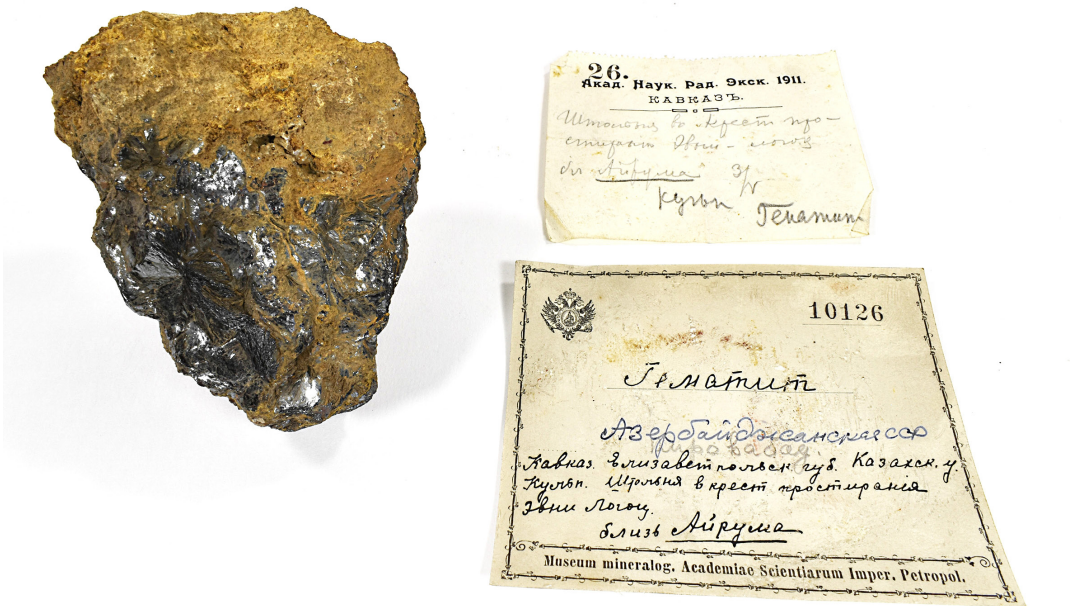 26.
Акад. Наук. Рад. Экск. 1911.
КАВКАЗЪ.
Штольня въ крест про-
стиран Эвни - логоц
бл Айрума
Кульп
Гематит
10126
Гематит
Азербайджанская сср
Кавказ. Елизаветпольск губ. Казахск. у.
Кульп. Штольня в крест простиранія
Эвни Логоц.
близь Айрума
Museum mineralog. Academiae Scientiarum Imper. Petropol.